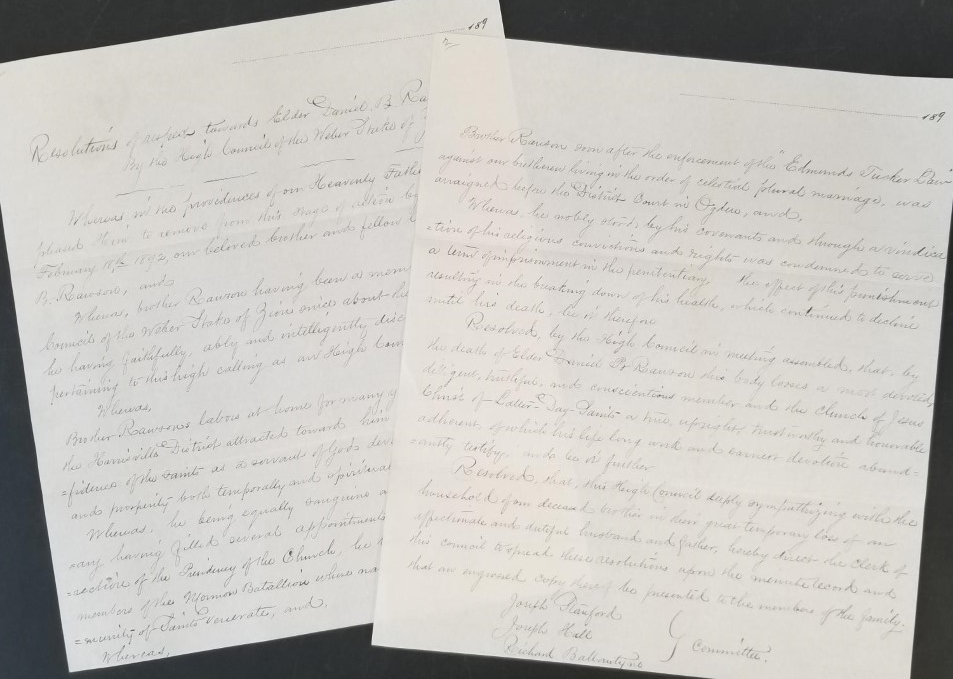 189
Resolutions of respect towards Elder Daniel B. Ra
By the High Council of the Weber Stake of
Whereas in the providences of our Heavenly Father
pleased Him to remove from this stage of action by
February 18th 1892, our beloved brother and fellow
B. Rawson, and
Whereas, brother Rawson having been a mem
Council of the Weber Stake of Zion since about the
he having faithfully, ably and intelligently disc
pertaining to this high calling as an High Coun
Whereas,
Brother Rawsons labors at home for many y
the Harrisville District attracted toward him
=fidence of the Saints as a servant of God dev
and prosperity both temporally and spiritual
Whereas, he being equally sanguine a
=ary having filled several appointments
=section of the Presidency of the Church, he
members of the Mormon Batallion whose na
=munity of Saints venerates, and,
Whereas,
2
189
Brother Rawson soon after the enforcement of the "Edmunds Tucker Law"
against our bretheren living in the order of celestial plural marriage, was
arraigned before the District Court in Ogden, and,
Whereas, he nobly stood by his covenants and through a vindica
=tion of his religious convictions and rights was condemned to serve
a term of imprisonment in the penitentiary the effect of this punishment
resulting in the breaking down of his health, which continued to decline
until his death, be it therefore
Resolved, by the High Council in meeting assembled, that, by
the death of Elder Daniel B. Rawson this body losses a most devoted,
deligent, truthful, and consciencious member and the Church of Jesus
Christ of Latter-Day-Saints a true, upright, trustworthy and honorable
adherent, of which his life long work and earnest devotion abund=
=antly testify, and be it further
Resolved, that, this High Council deeply sympathizing with the
household of our deceased brother in their great temporary loss of an
affectionate and dutiful husband and father, hereby direct the clerk of
this council to spread these resolutions upon the minute record and
that an engrossed copy thereof be presented to the members of the family.
Joseph Stanford
Joseph Hall
Richard Ballantyne
Committee.